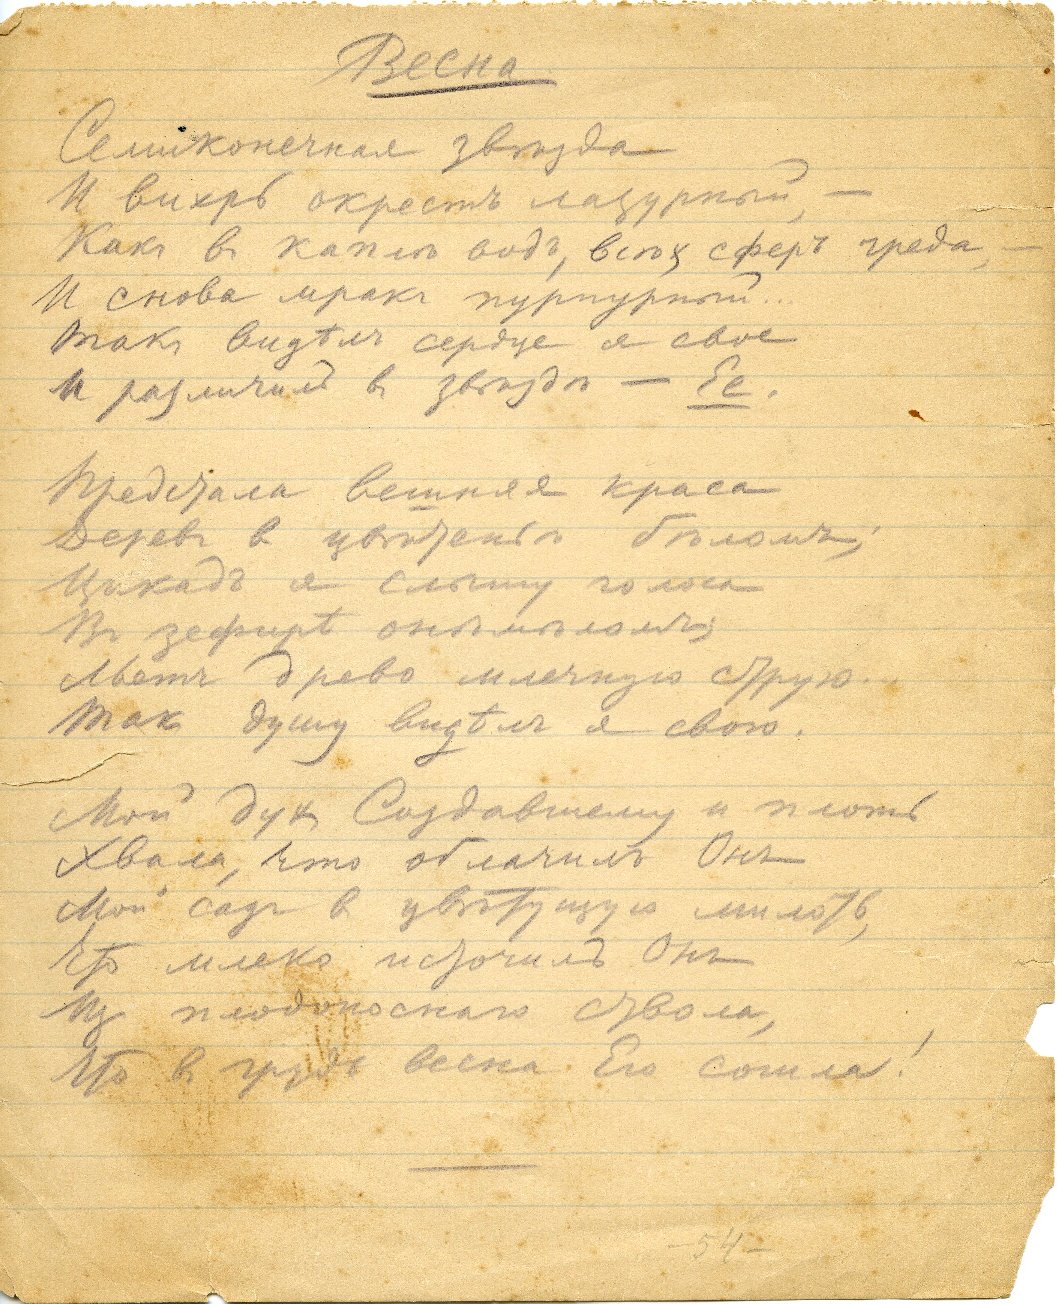 Весна
Семиконечная звѣзда
И вихрь окрестъ лазурный, —
Какъ въ каплѣ водъ, всѣхъ сферъ чреда, —
И снова мракъ пурпурный...
Такъ видѣлъ сердце я свое
И различилъ въ звѣздѣ — Ее.
Предстала вешняя краса
Деревъ в цвѣтеньѣ бѣломъ;
Цикадъ я слышу голоса
Въ зефирѣ онѣмѣломъ;
Льетъ древо млечную струю...
Такъ душу видѣлъ я свою.
Мой духъ Создавшему и плоть
Хвала, что облачилъ Онъ
Мой садъ в цвѣтущую милоть,
Что млеко источилъ Онъ
Из плодоноснаго ствола,
Что въ грудь весна Его сошла!
—54—